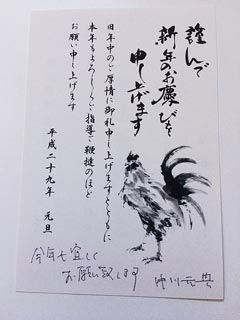 謹んで
新年のお慶びを
申し上げます
旧年中のご厚情に御礼申し上げますとともに
本年もよろしくご指導ご鞭撻のほど
お願い申し上げます
平成二十九年 元旦
今年も宜しく
お願い致します